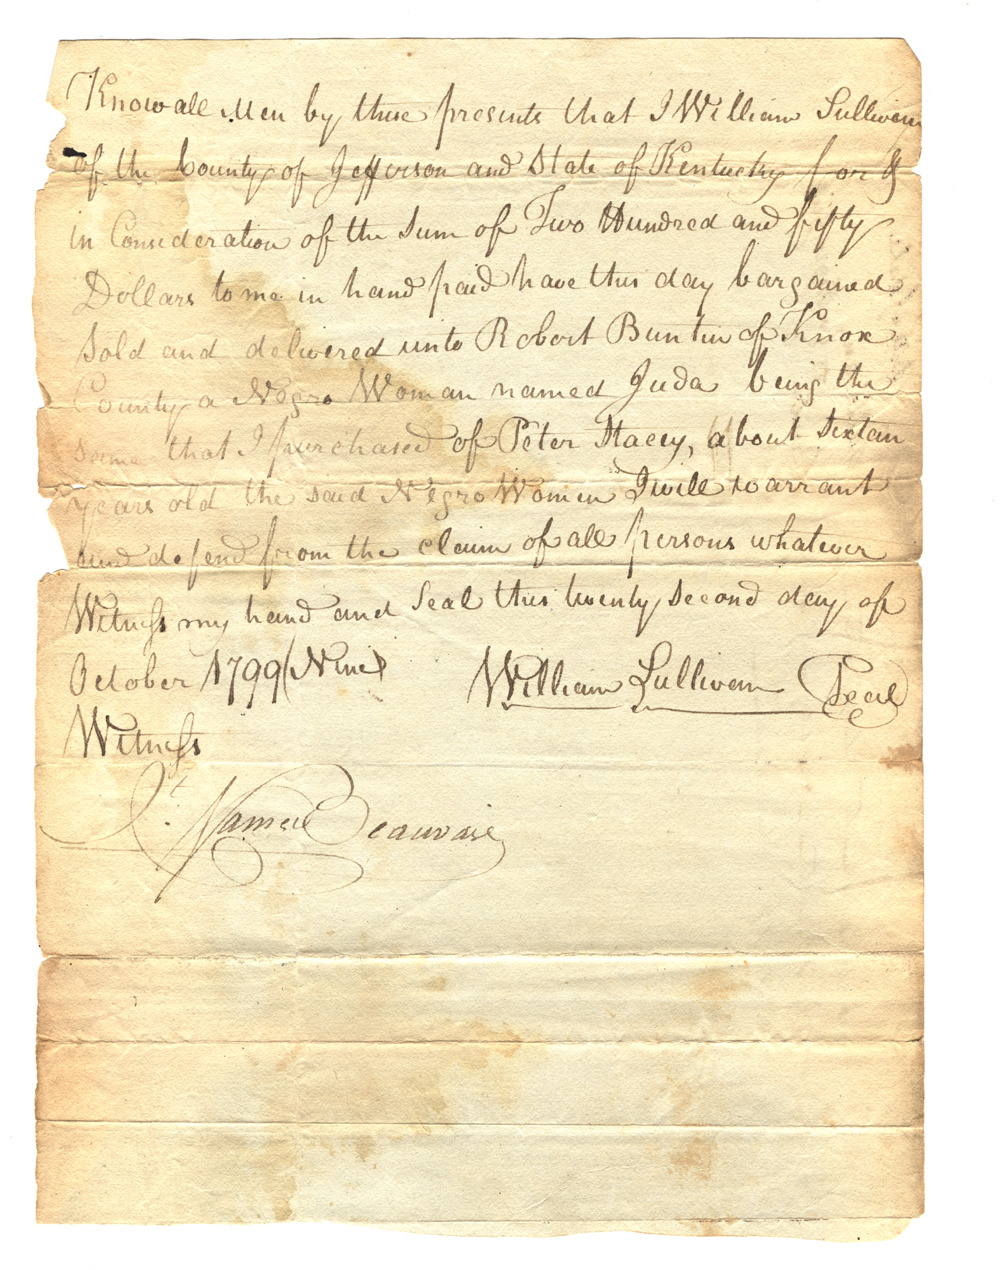 Know all Men by these presents that I William Sullivan
of the County of Jefferson and State of Kentucky for &
in Consideration of the Sum of Two Hundred and fifty
Dollars to me in hand paid have this day bargained
Sold and delivered unto Robert Buntin of Knox
County a Negro Woman named Juda being the
same that I purchased of Peter Stacey, about Sixtan
years old the said Negro Women I will warrant
and defend from the claim of all persons whatever
Witness my hand and Seal this twenty second day of
October 1799 (Nine)
William Sullivan Seal
Witness
Beauvais